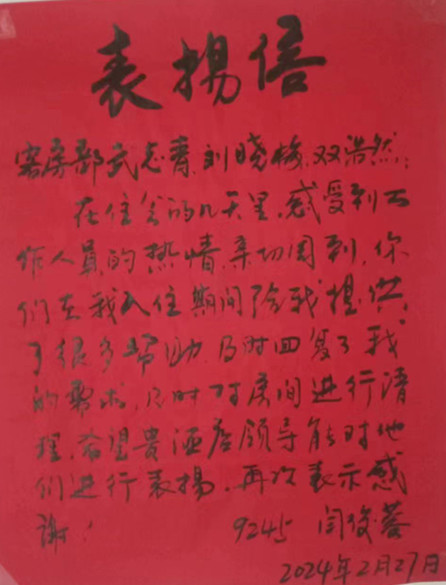 表扬信
客房部武志青、刘晓梅、双浩然：
在住会的几天里，感受到工
作人员的热情、亲切周到，你
们在我入住期间给我提供
了很多帮助，及时回复了我
的需求，及时对房间进行清
理，希望贵酒店领导能对他
们进行表扬，再次表示感
谢！
9245 闫俊蓉
2024年2月27日